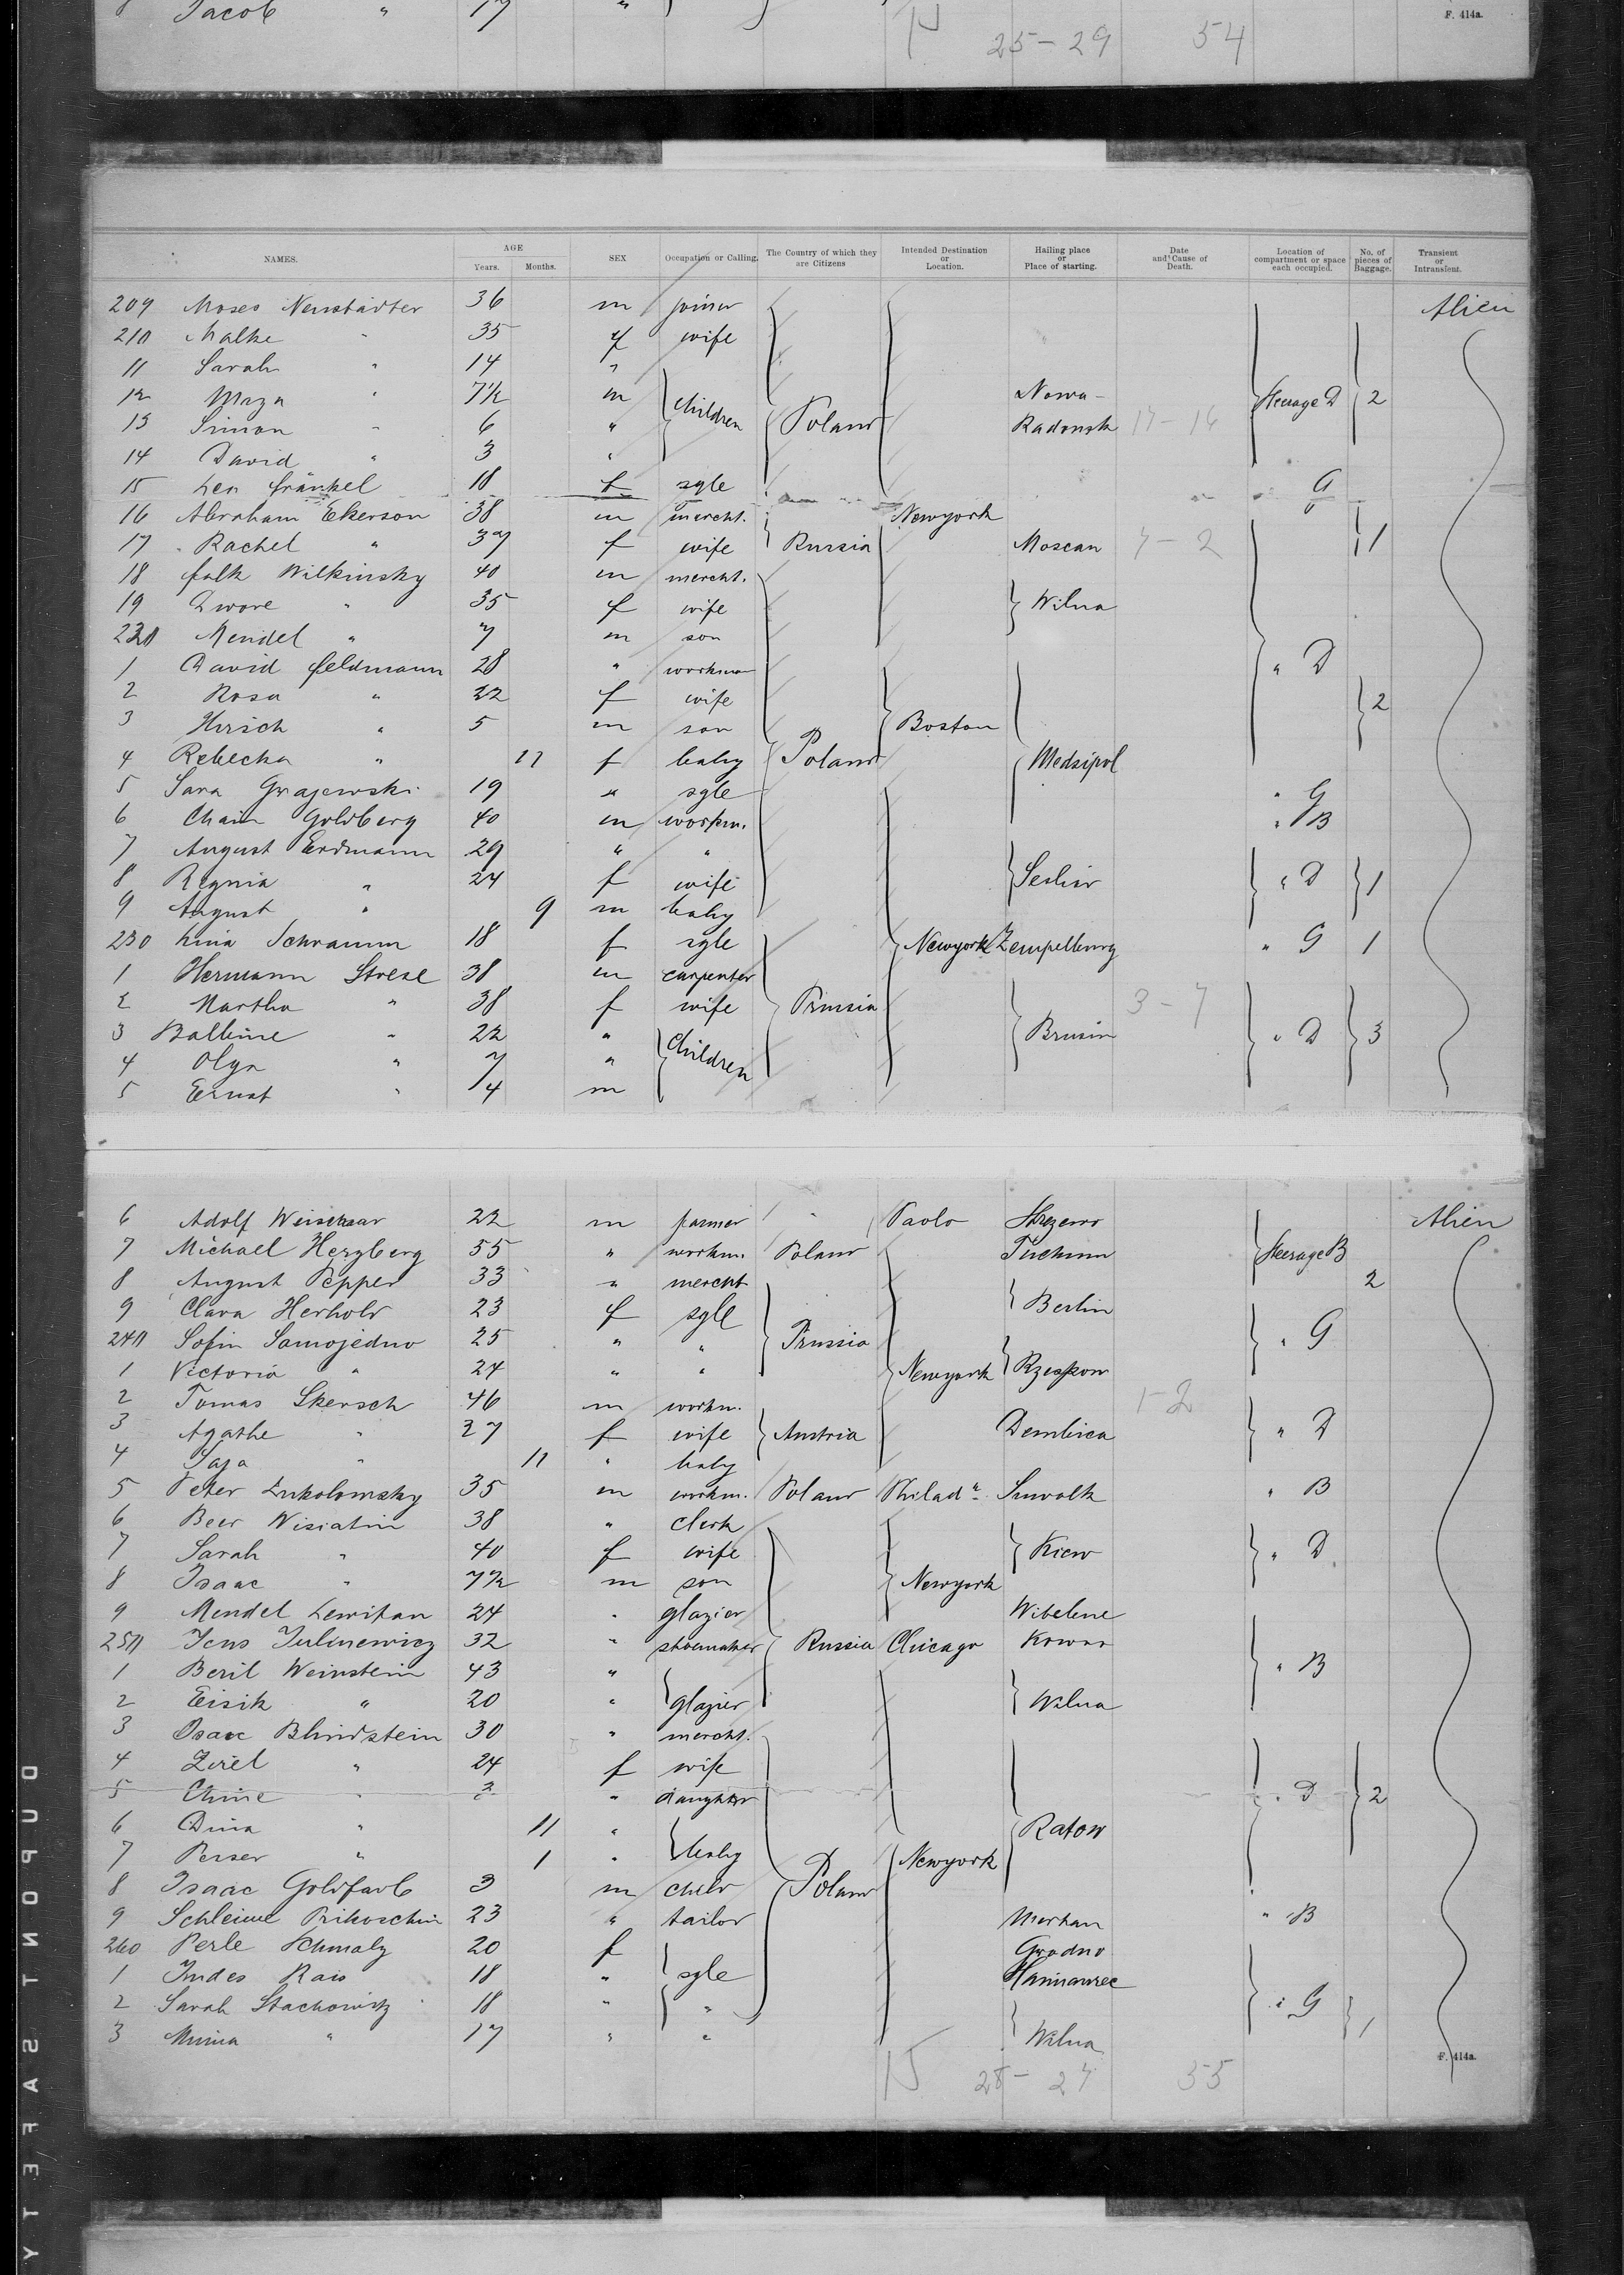 8 Jacob " 17 "
F. 414a.
14 25-29 54
NAMES. AGE Years. Months. SEX Occupation or Calling. The Country of which they are Citizens Intended Destination or Location. Hailing place or Place of starting. Date and Cause of Death. Location of compartment or space each occupied. No. of pieces of Baggage. Transient or Intransient.
209 Moses Neustädter 36 m joiner Alien
210 Malke " 35 f wife
11 Sarah " 14 "
12 " 7½ m children Nowa- Steerage D 2
13 Simon " 6 " Poland Radomsk 17-16
14 David " 3 "
15 Lea Fränkel 18 f sgle G
16 Abraham Ekerson 38 m mercht. Newyork
17 Rachel " 37 f wife Russia Moscau 7-2 1
18 Falk Wilkinsky 40 m mercht.
19 Dwore " 35 f wife Wilna
220 Mendel " 7 m son
1 David Feldmann 28 " workman " D
2 Rosa " 22 f wife 2
3 Hirsch " 5 m son Boston
4 Rebecka " 11 f baby Poland Medsipol
5 Sara Grajewski 19 " sgle " G
6 Chaim Goldberg 40 m workm. " B
7 August Erdmann 29 " "
8 Regnia " 24 f wife " D 1
9 August " 9 m baby
230 Lina Schramm 18 f sgle Newyork Zempelburg " G 1
1 Hermann Strese 38 m carpenter
2 Martha " 38 f wife Prussia 3-7
3 " 22 " Children Brusin " D 3
4 Olga " 7 "
5 Ernst " 4 m
6 Adolf 22 m farmer " Alien
7 Michael Herzberg 55 " workm. Poland Tuchum Steerage B
8 August Pepper 33 " mercht 2
9 Clara Herhold 23 f sgle Berlin
240 Sofia Samojedno 25 " " Prussia " G
1 Victoria " 24 " " Newyork
2 Tomas Skersch 46 m workm. 1-2
3 Agathe " 27 f wife Austria Dembica " D
4 " 11 " baby
5 Peter Lukolomsky 35 m workm. Poland Philad a. Suwalk " B
6 Beer Wisiatin 38 " clerk
7 Sarah " 40 f wife Kiew " D
8 Isaac " 7½ m son Newyork
9 Mendel Lewitan 24 " glazier Wibelene
250 32 " shoemaker Russia Chicago Kowno
1 Beril Weinstein 43 " " B
2 Eisik " 20 " glazier Wilna
3 Isaac Blindstein 30 " mercht.
4 Zirel " 24 f wife
5 " 3 " daughter " D 2
6 Dina " 11 " Ratow
7 Perser " 1 " baby Newyork
8 Isaac Goldfarb 3 m child Poland
9 Schleime Prikoschin 23 " tailor " B
260 Perle Schmalz 20 f Grodno
1 Judes Rais 18 " sgle
2 Sarah Stachowitz 18 " " " G
3 Minna " 17 " " Wilna 1
F. 414a.
15 28-27 55
DUPONT SAFETY